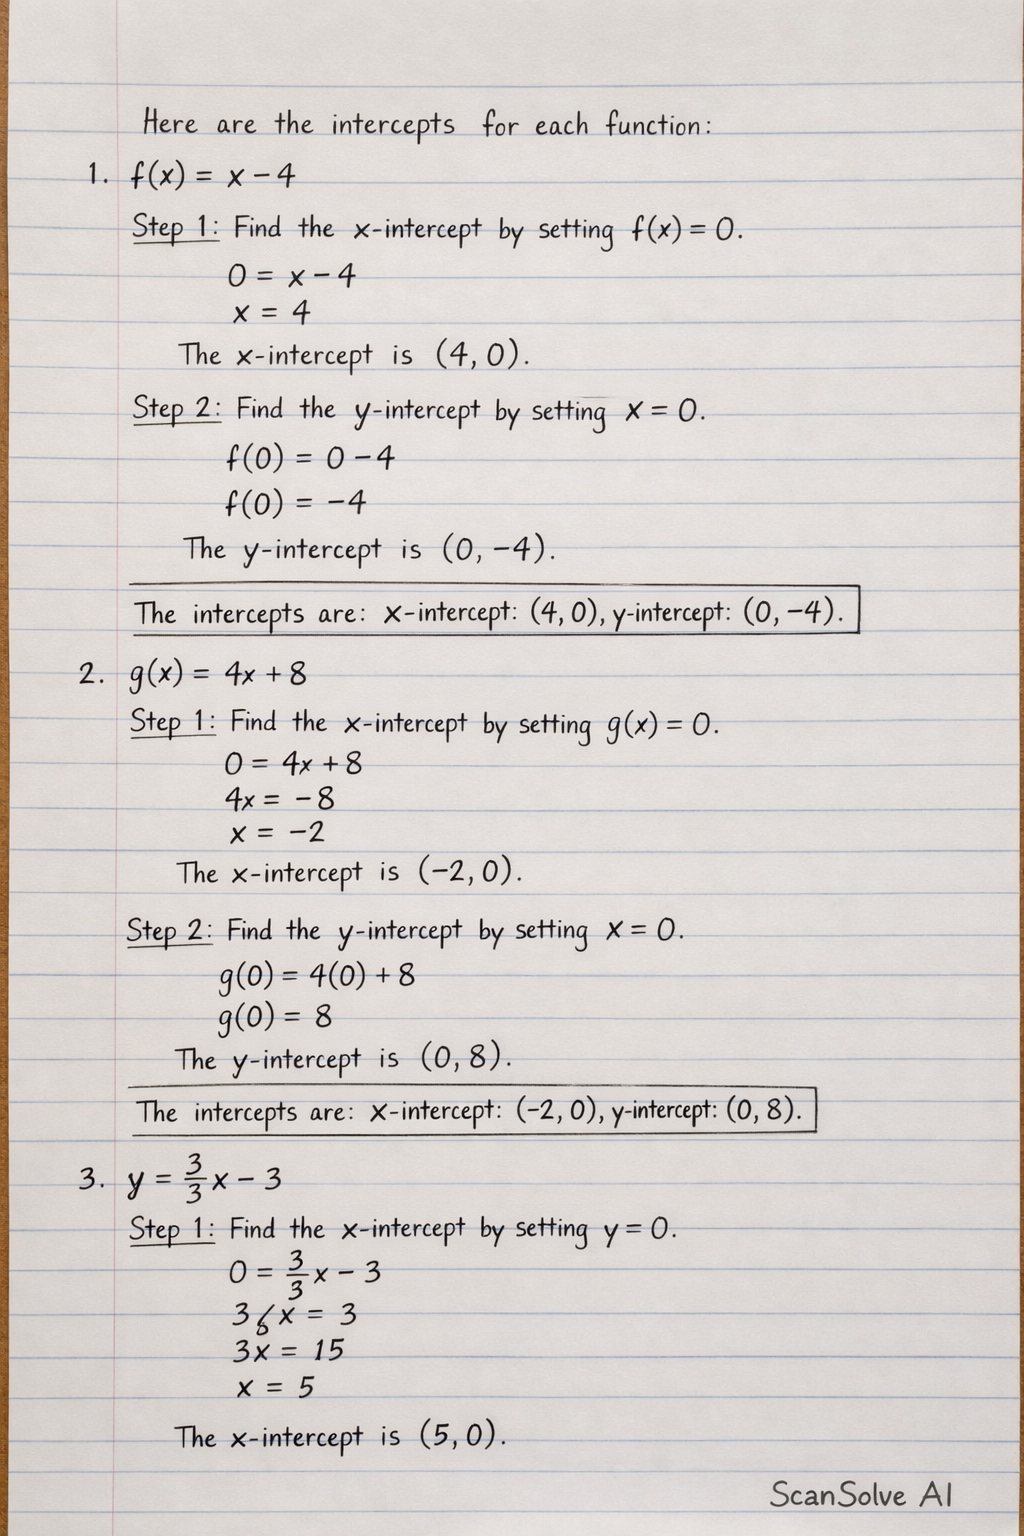 Here are the intercepts for each function:
1. f(x) = x − 4
Step 1: Find the x-intercept by setting f(x) = 0.
0 = x − 4
x = 4
The x-intercept is (4, 0).
Step 2: Find the y-intercept by setting x = 0.
f(0) = 0 − 4
f(0) = −4
The y-intercept is (0, −4).
The intercepts are: x-intercept: (4, 0), y-intercept: (0, −4).
2. g(x) = 4x + 8
Step 1: Find the x-intercept by setting g(x) = 0.
0 = 4x + 8
4x = −8
x = −2
The x-intercept is (−2, 0).
Step 2: Find the y-intercept by setting x = 0.
g(0) = 4(0) + 8
g(0) = 8
The y-intercept is (0, 8).
The intercepts are: x-intercept: (−2, 0), y-intercept: (0, 8).
3. y = 3/3 x − 3
Step 1: Find the x-intercept by setting y = 0.
0 = 3/3 x − 3
3 x = 3
3x = 15
x = 5
The x-intercept is (5, 0).
ScanSolve AI